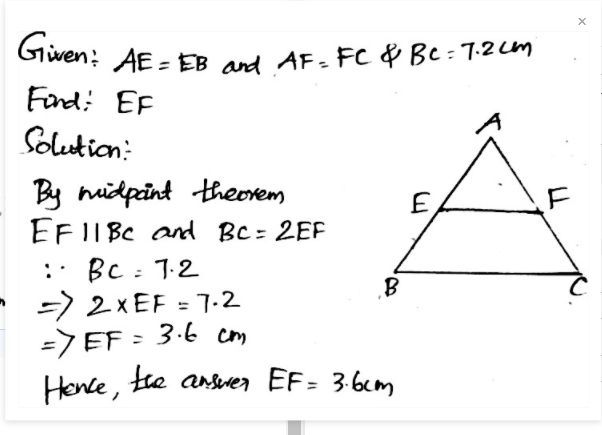 Given: AE = EB and AF = FC & BC = 7.2 cm
Find: EF
Solution:
By midpoint theorem
EF || BC and BC = 2EF
∵ BC = 7.2
=> 2 x EF = 7.2
=> EF = 3.6 cm
Hence, the answer EF = 3.6cm
A
E
F
B
C